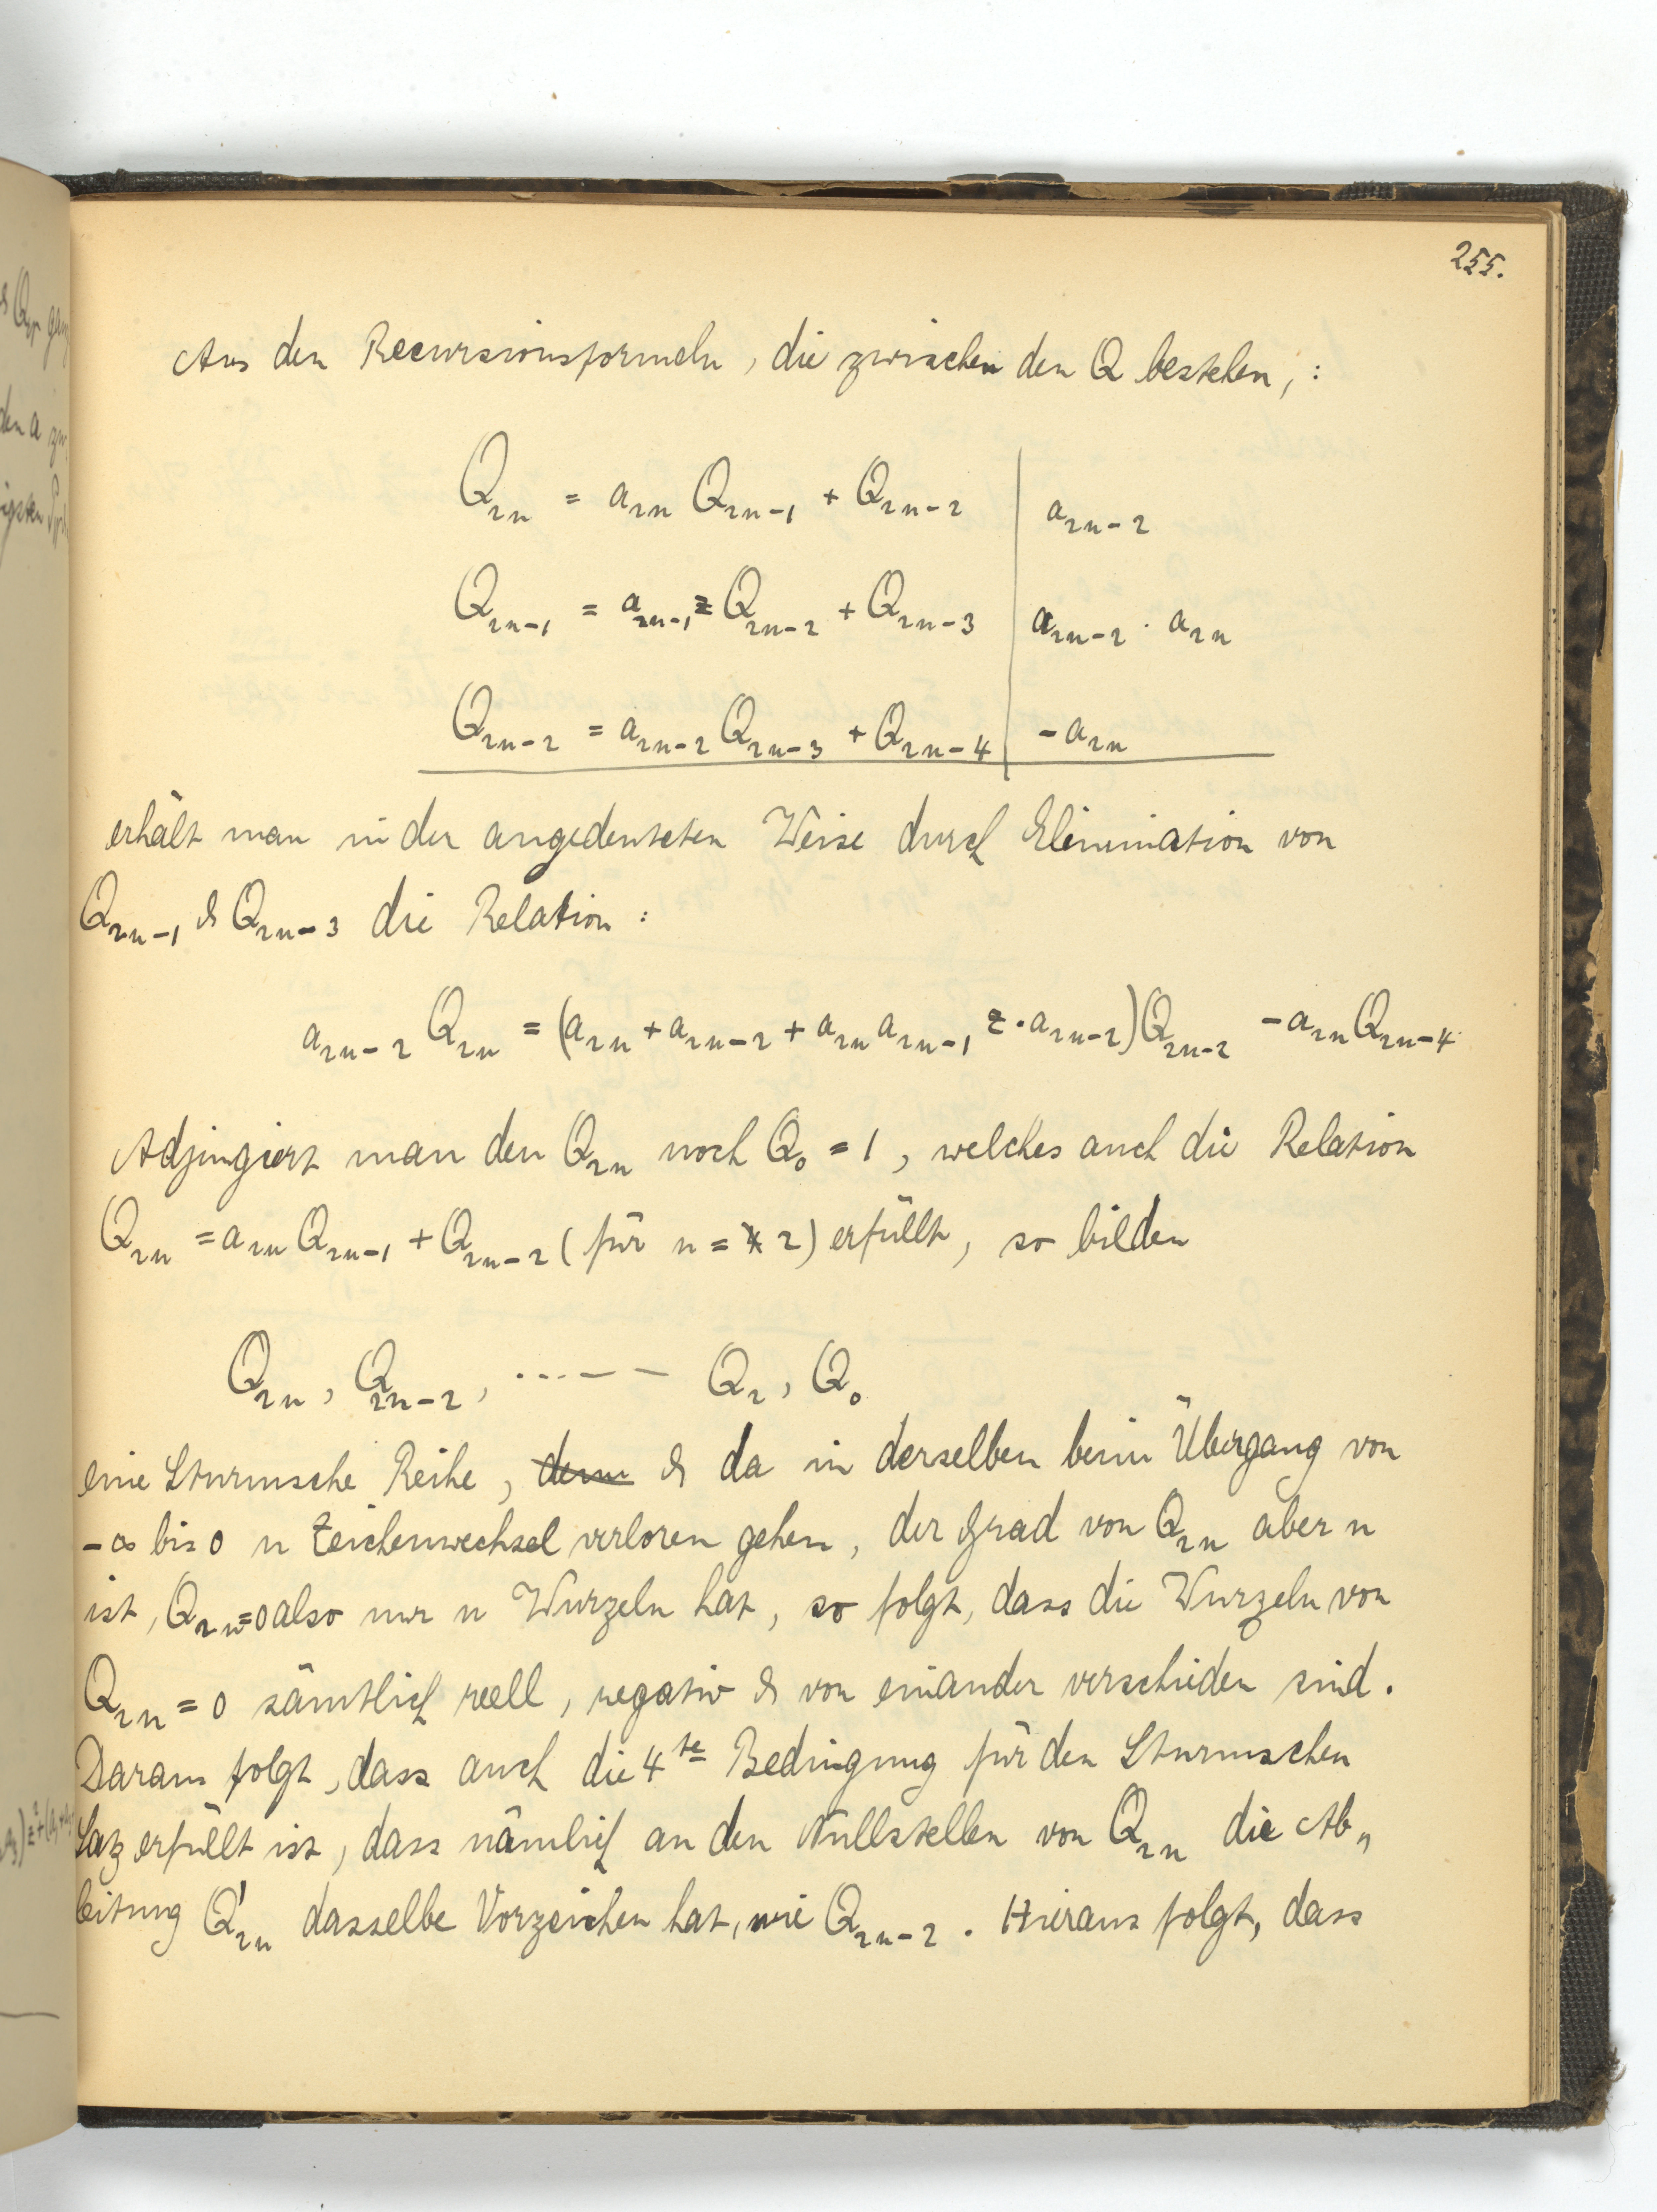 255.
Aus den Recursionsformeln, die zwischen den Q bestehen, :
Q₂ₙ = a₂ₙ Q₂ₙ₋₁ + Q₂ₙ₋₂ | a₂ₙ₋₂
Q₂ₙ₋₁ = a₂ₙ₋₁ z Q₂ₙ₋₂ + Q₂ₙ₋₃ | a₂ₙ₋₂ · a₂ₙ
Q₂ₙ₋₂ = a₂ₙ₋₂ Q₂ₙ₋₃ + Q₂ₙ₋₄ | - a₂ₙ
erhält man in der angedeuteten Weise durch Elimination von
Q₂ₙ₋₁ & Q₂ₙ₋₃ die Relation :
a₂ₙ₋₂ Q₂ₙ = (a₂ₙ + a₂ₙ₋₂ + a₂ₙ a₂ₙ₋₁ z · a₂ₙ₋₂) Q₂ₙ₋₂ - a₂ₙ Q₂ₙ₋₄.
Adjungiert man den Q₂ₙ noch Q₀ = 1, welches auch die Relation
Q₂ₙ = a₂ₙ Q₂ₙ₋₁ + Q₂ₙ₋₂ (für n = 2) erfüllt, so bilden
Q₂ₙ, Q₂ₙ₋₂, ...--- Q₂, Q₀
eine Sturmsche Reihe, denn & da in derselben beim Übergang von
-∞ bis 0 n Zeichenwechsel verloren gehen, der Grad von Q₂ₙ aber n
ist, Q₂ₙ=0 also nur n Wurzeln hat, so folgt, dass die Wurzeln von
Q₂ₙ = 0 sämtlich reell, negativ & von einander verschieden sind.
Daraus folgt, dass auch die 4te Bedingung für den Sturmschen
Satz erfüllt ist, dass nämlich an den Nullstellen von Q₂ₙ die Ab„
leitung Q'₂ₙ dasselbe Vorzeichen hat, wie Q₂ₙ₋₂. Hieraus folgt, dass